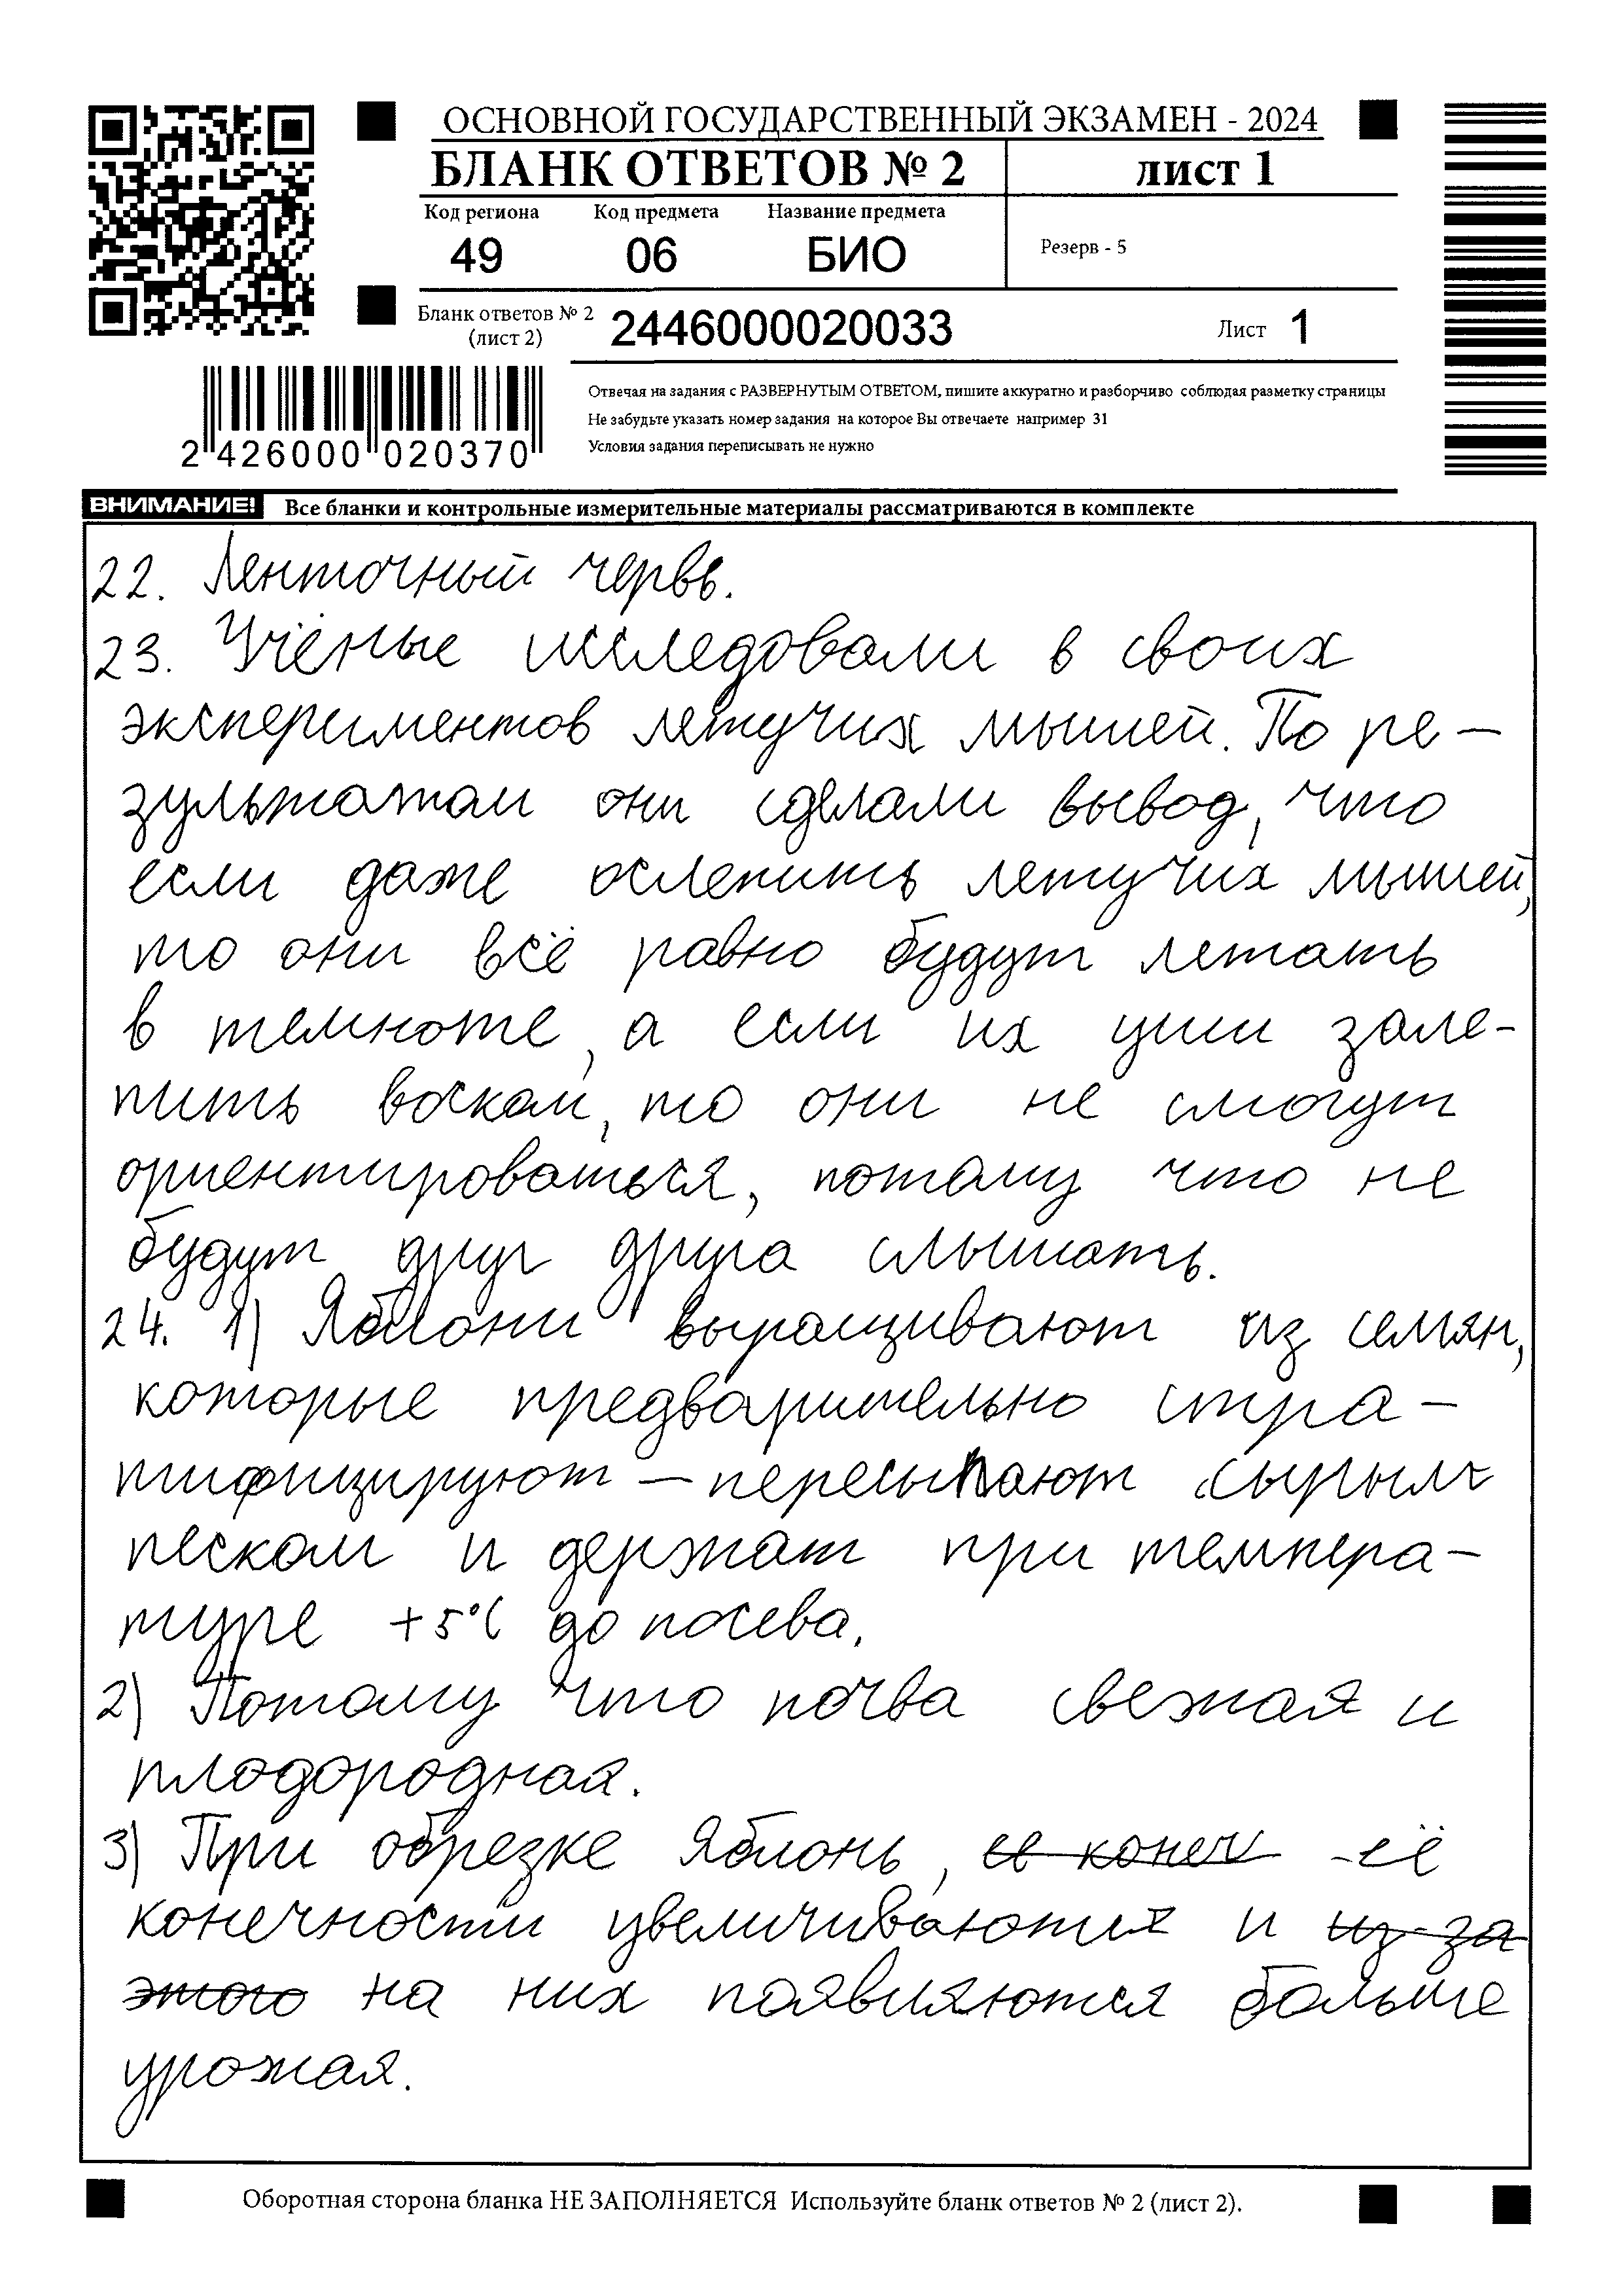 ОСНОВНОЙ ГОСУДАРСТВЕННЫЙ ЭКЗАМЕН - 2024
БЛАНК ОТВЕТОВ № 2
лист 1
Код региона Код предмета Название предмета
49 06 БИО
Резерв - 5
Бланк ответов № 2 (лист 2) 2446000020033
Лист 1
2 426000 020370
Отвечая на задания с РАЗВЕРНУТЫМ ОТВЕТОМ, пишите аккуратно и разборчиво соблюдая разметку страницы
Не забудьте указать номер задания на которое Вы отвечаете например 31
Условия задания переписывать не нужно
ВНИМАНИЕ! Все бланки и контрольные измерительные материалы рассматриваются в комплекте
22. Ленточный червь.
23. Учёные исследовали в своих
экспериментов летучих мышей. По ре-
зультатам они сделали вывод, что
если даже ослепить летучих мышей,
то они всё равно будут летать
в темноте, а если их уши зале-
пить воском, то они не смогут
ориентироваться, потому что не
будут друг друга слышать.
24. 1) Яблони выращивают из семян,
которые предварительно стра-
тифицируют - пересыпают сырым
песком и держат при темпера-
туре +5°С до посева.
2) Потому что почва свежая и
плодородная.
3) При обрезке яблонь, ее конеч её
конечности увеличиваются и из-за
этого на них появляются больше
урожая.
Оборотная сторона бланка НЕ ЗАПОЛНЯЕТСЯ Используйте бланк ответов № 2 (лист 2).